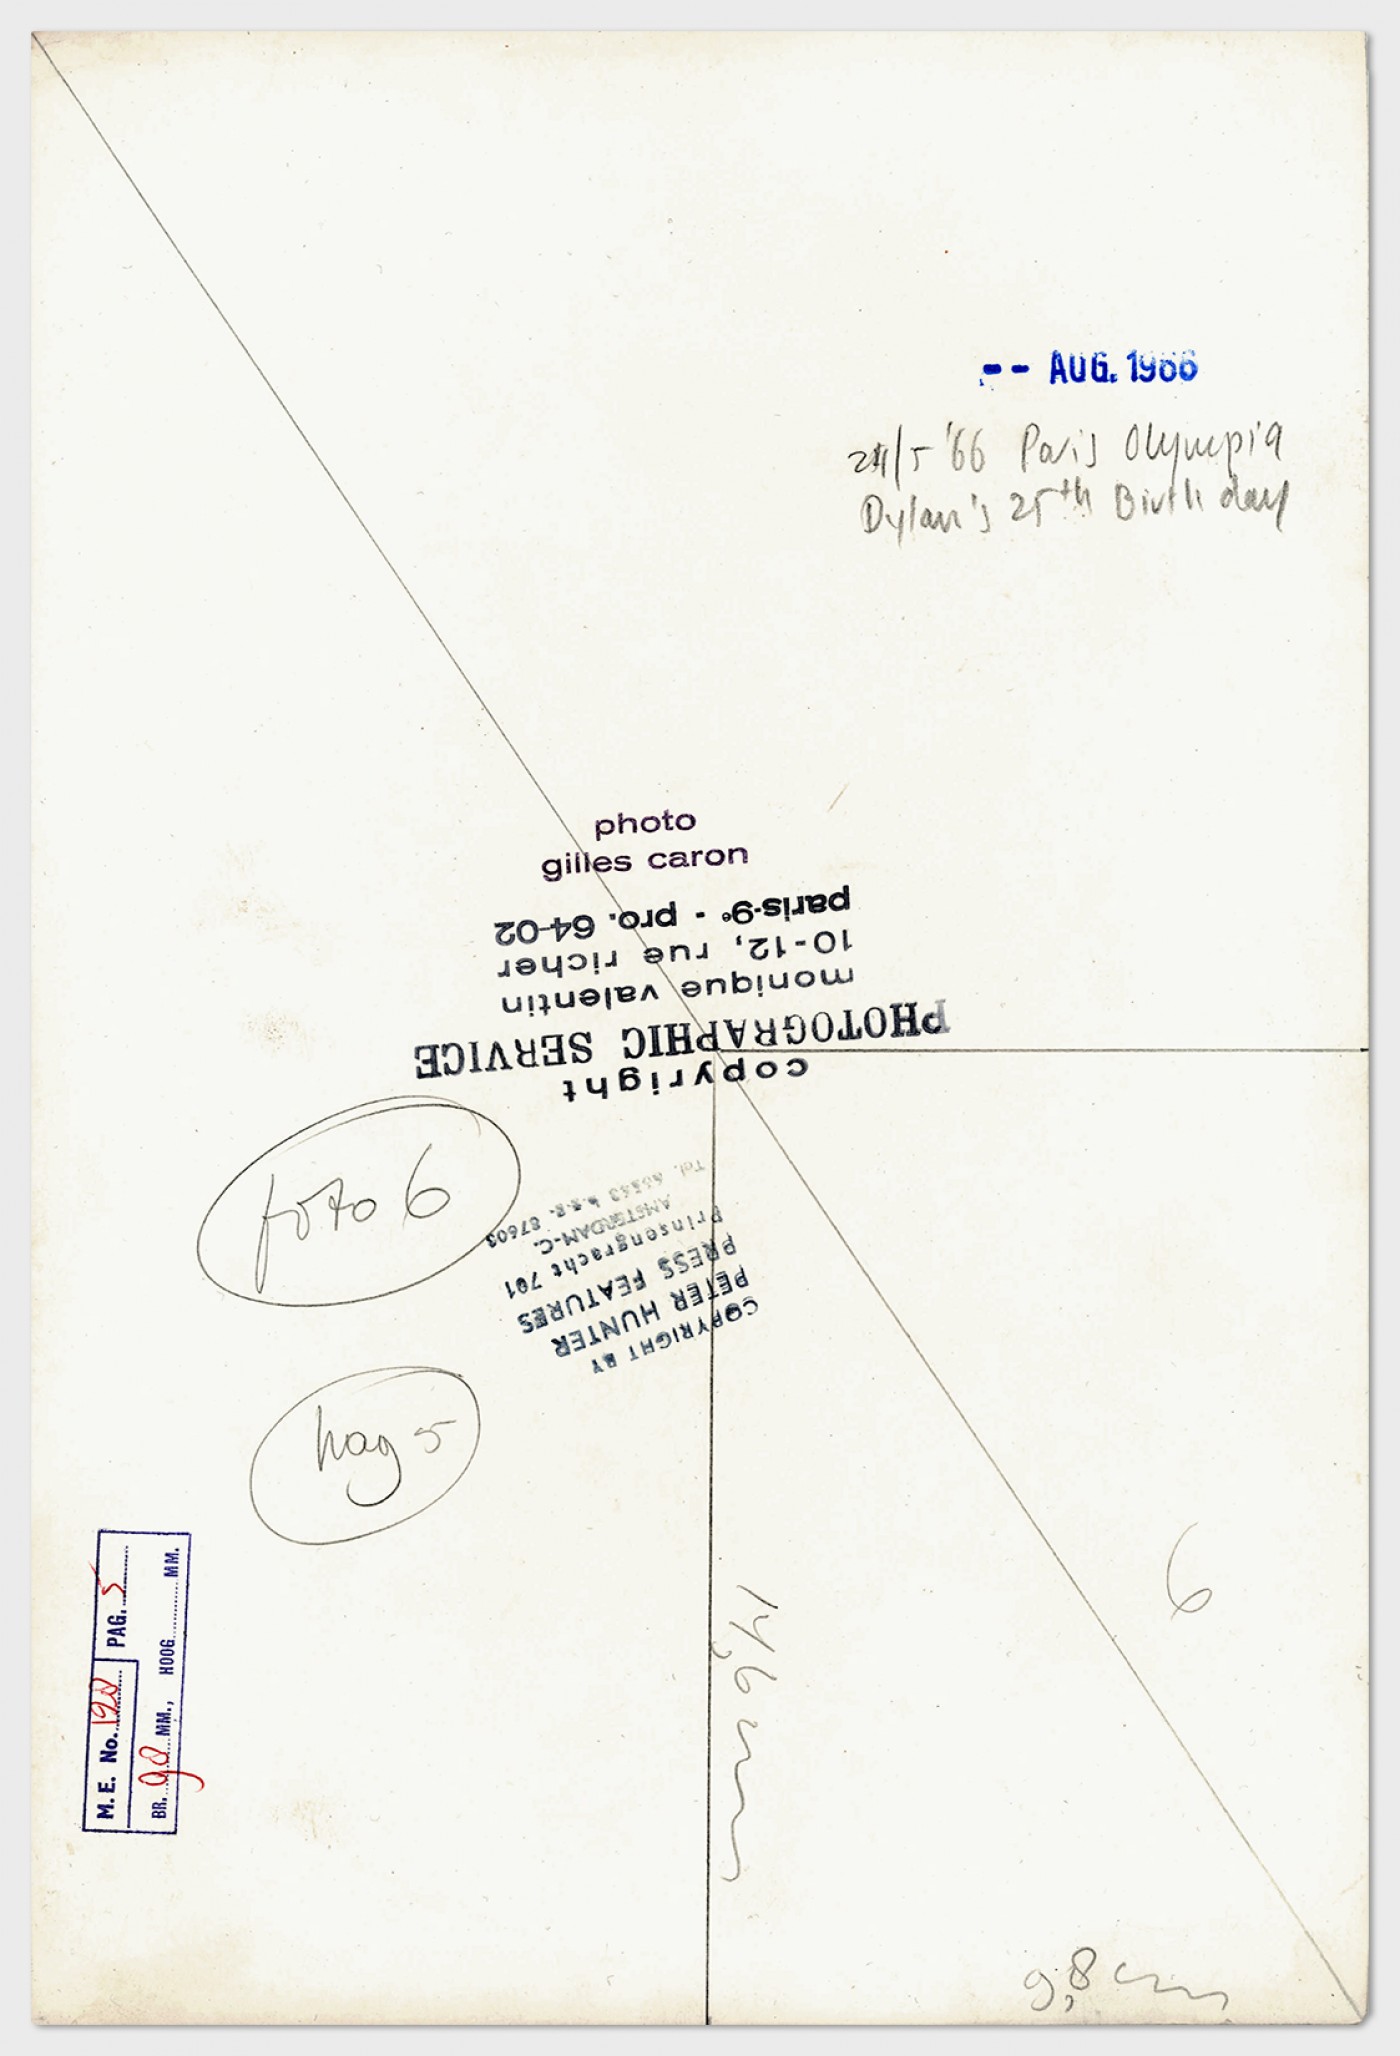 -- AUG. 1966
24/5 '66 Paris Olympia
Dylan's 25th Birthday
photo
gilles caron
copyright
PHOTOGRAPHIC SERVICE
monique valentin
10-12, rue richer
paris-9e - pro. 64-02
foto 6
COPYRIGHT BY
PETER HUNTER
PRESS FEATURES
Prinsengracht 701
AMSTERDAM-C.
Tel. 87603
pag 5
M. E. No. 190 PAG. 5
BR. 98 MM., HOOG MM.
14,6 cm
6
9,8 cm